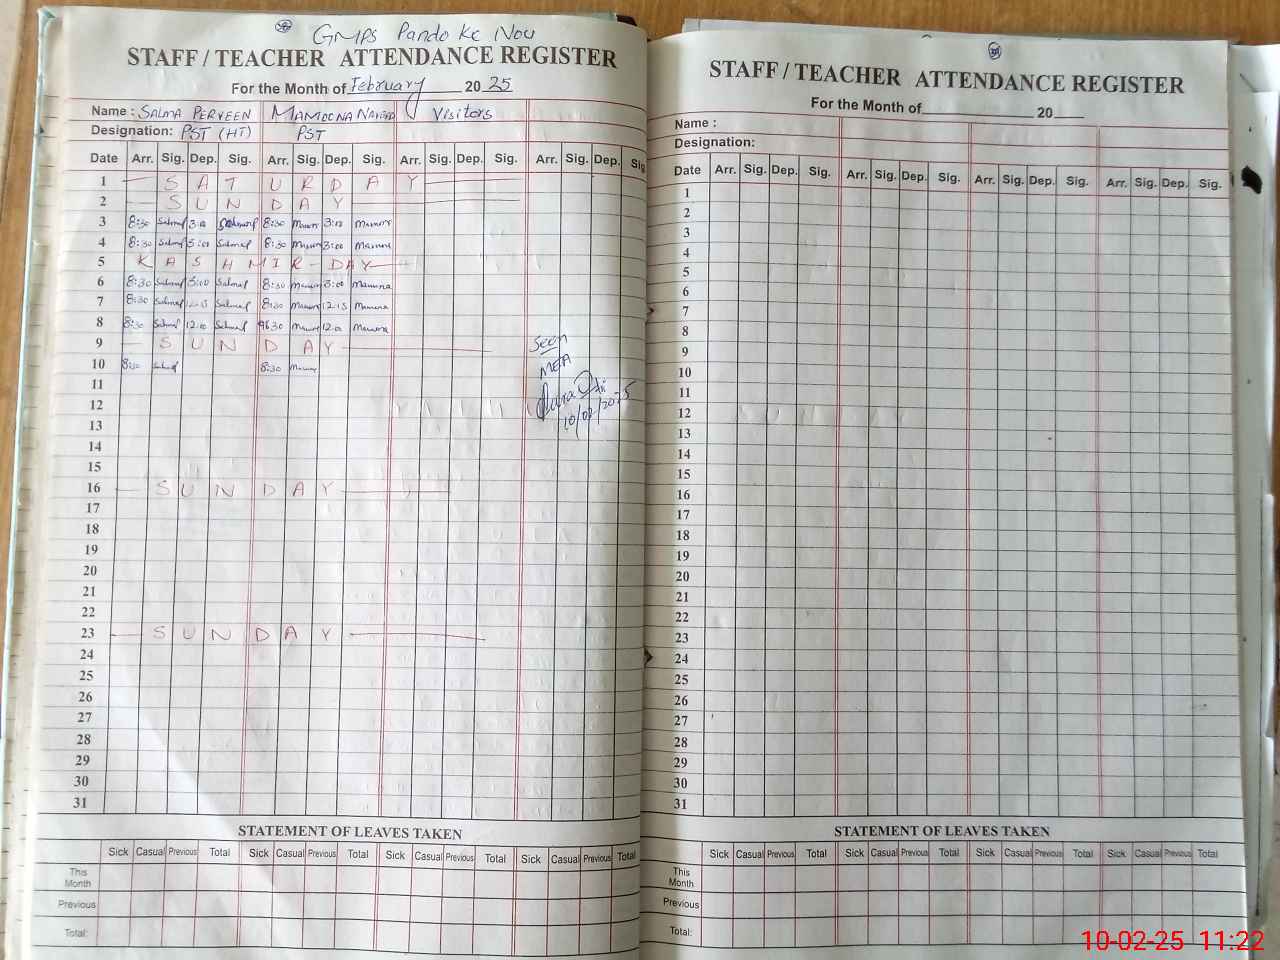 GMPS Pando Ke Nou
STAFF / TEACHER ATTENDANCE REGISTER
For the Month of February 2025
Name : SALMA PERVEEN MAMOONA NAWAZ Visitors
Designation: PST (HT) PST
Date Arr. Sig. Dep. Sig. Arr. Sig. Dep. Sig. Arr. Sig. Dep. Sig. Arr. Sig. Dep. Sig
1 SATURDAY
2 SUNDAY
3 8:30 Salma 3:00 8:30 3:00
4 8:30 Salma 3:00 Salma 8:30 3:00
5 KASHMIR-DAY
6 8:30 Salma 3:00 Salma 8:30 3:00 Mamuna
7 8:30 Salma 12:15 Salma 8:30 12:15 Mamuna
8 8:30 Salma 12:00 Salma 8:30 12:00 Mamuna
9 SUNDAY
10 8:30 Salma 8:30
Seen
MEA
10/02/2025
11
12
13
14
15
16 SUNDAY
17
18
19
20
21
22
23 SUNDAY
24
25
26
27
28
29
30
31
STATEMENT OF LEAVES TAKEN
Sick Casual Previous Total Sick Casual Previous Total Sick Casual Previous Total Sick Casual Previous Total
This Month
Previous
Total:
STAFF / TEACHER ATTENDANCE REGISTER
For the Month of 20
Name :
Designation:
Date Arr. Sig. Dep. Sig. Arr. Sig. Dep. Sig. Arr. Sig. Dep. Sig. Arr. Sig. Dep. Sig.
1
2
3
4
5
6
7
8
9
10
11
12
13
14
15
16
17
18
19
20
21
22
23
24
25
26
27
28
29
30
31
STATEMENT OF LEAVES TAKEN
Sick Casual Previous Total Sick Casual Previous Total Sick Casual Previous Total Sick Casual Previous Total
This Month
Previous
Total:
10-02-25 11:22